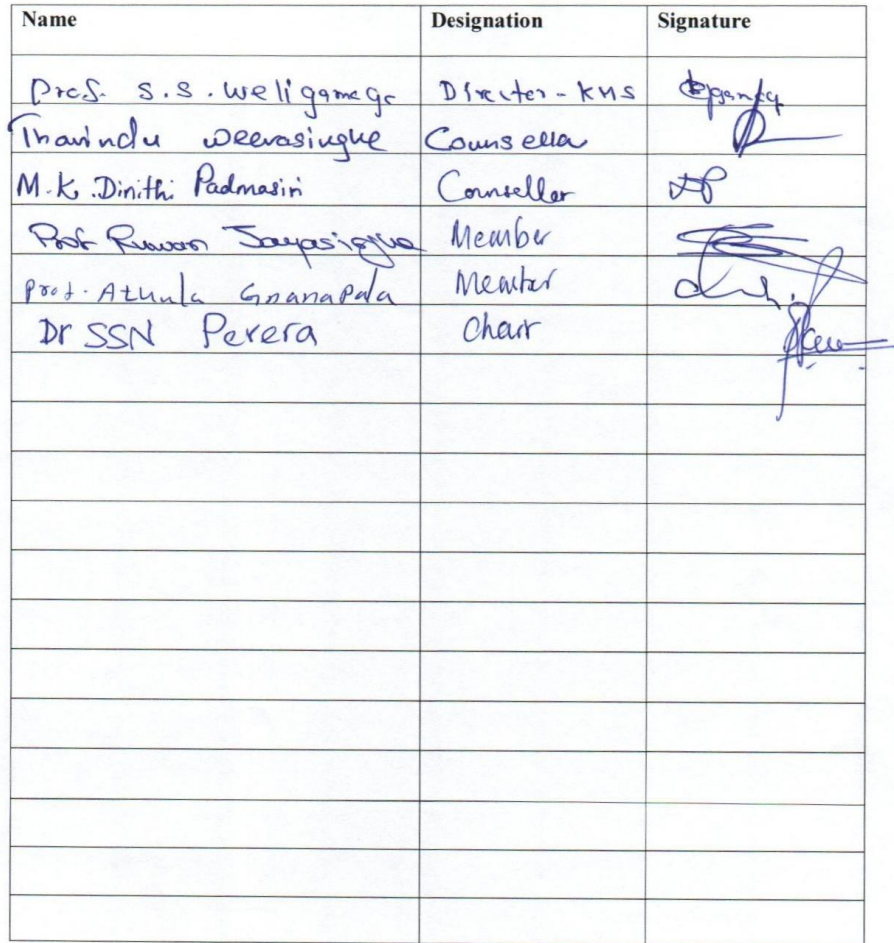 Name Designation Signature
Prof. S.S. Weligamage Director - KMS
Tharindu Weerasinghe Counsellor
M.K. Dinithi Padmasiri Counsellor
Prof Ruwan Jayasinghe Member
Prof. Athula Gnanapala Member
Dr SSN Perera Chair